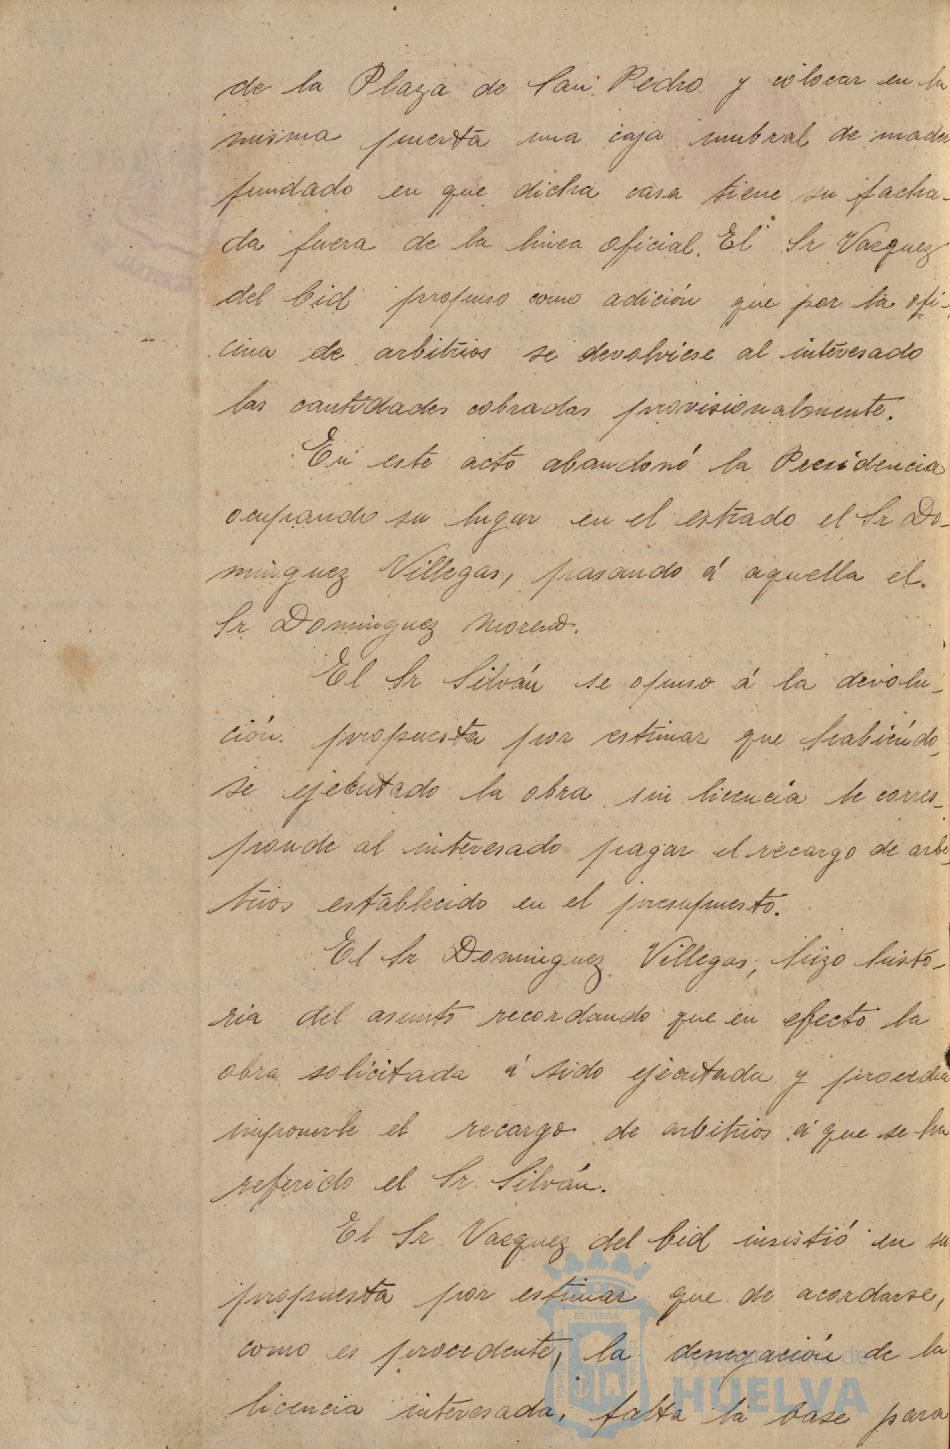 de la Plaza de San Pedro y colocar en la
misma puerta una caja umbral de made
fundado en que dicha casa tiene su facha-
da fuera de la linea oficial. El Sr Vazquez
del Cid propuso como adición que por la ofi-
cina de arbitrios se devolviese al interesado
las cantidades cobradas provisionalmente.
En este acto abandonó la Presidencia
ocupando su lugar en el estrado el Sr Do-
minguez Villegas, pasando á aquella el
Sr Dominguez Moreno.
El Sr Silván se opuso á la devolu-
ción propuesta por estimar que habiéndo-
se ejecutado la obra sin licencia le corres-
ponde al interesado pagar el recargo de arbi-
trios establecido en el presupuesto.
El Sr Dominguez Villegas, hizo histo-
ria del asunto recordando que en efecto la
obra solicitada á sido ejecutada y procedia
imponerle el recargo de arbitrios á que se ha
referido el Sr Silván.
El Sr Vazquez del Cid insistió en su
propuesta por estimar que de acordarse,
como es procedente, la denegación de la
licencia interesada, falta la base para
HUELVA